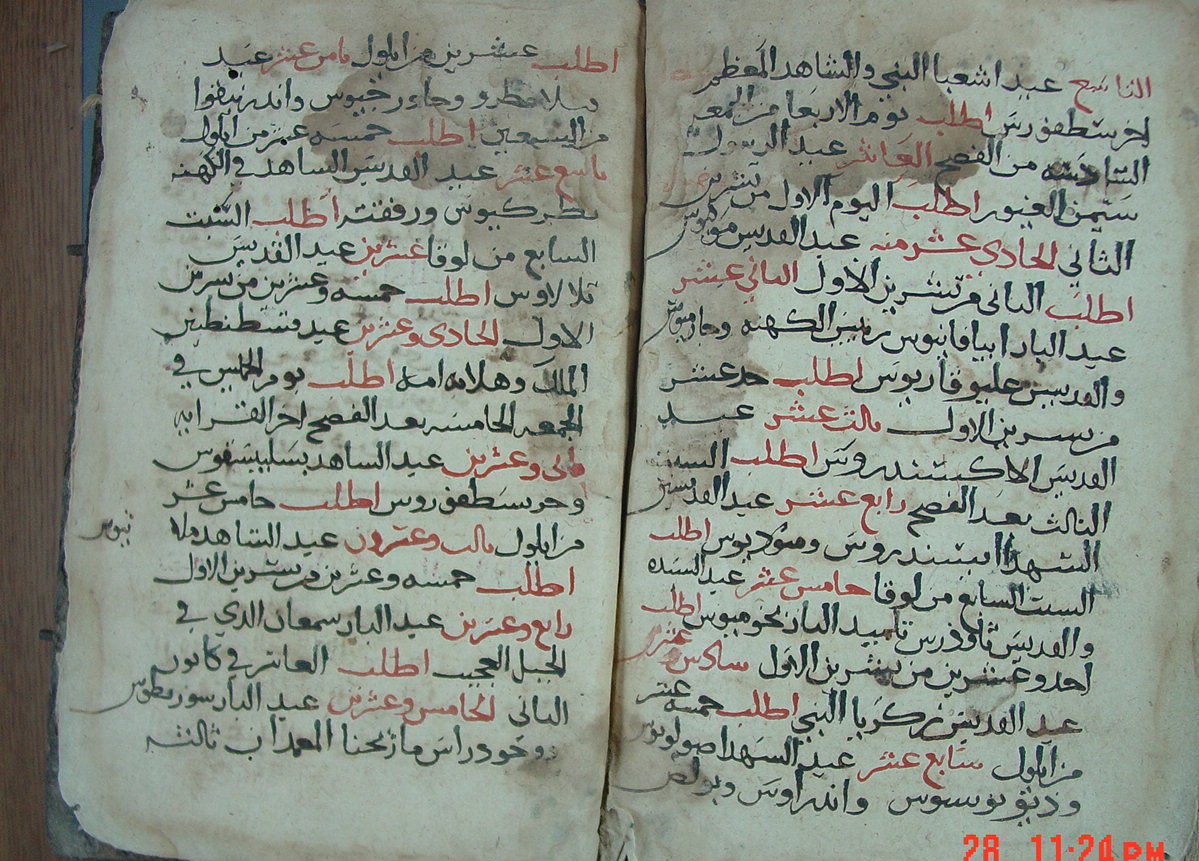 التاسع عيد اشعيا النبي والشاهد المعظم
اخرسطفورس اطلب يوم الاربعا من الجمعه
السادسه من الفصح العاشر عيد الرسول
سيمن الغيور اطلب اليوم الاول من تشرين
الثاني الحادي عشر منه عيد القديس موكيوس
اطلب الثاني من تشرين الاول الثاني عشر
عيد البار ابيافانيوس رييس الكهنه وجارمنوس
والقديس غليوقاريوس اطلب حد عشر
من تسرين الاول ثالث عشر عيد
القديس الاكسندروس اطلب السبت
الثالث بعد الفصح رابع عشر عيد القديسين
الشهدا ومتوديوس اطلب
السبت السابع من لوقا خامس عشر عيد السيده
والقديس تاوفرس تلميد البار بخوميوس اطلب
احد وعشرين من تشرين الاول سادس عشر
عيد القديس زكريا النبي اطلب خمسة عشر
من ايلول سابع عشر عيد الشهدا
وديونوسيوس واندراوس وبولص
اطلب عشرين من ايلول ثامن عشر عيد
واندرنيقوا
من السبعين اطلب خمسه عشر من ايلول
تاسع عشر عيد القديس الشاهد في الكهنه
بطركيوس ورفقته اطلب السبت
السابع من لوقا عشرين عيد القديس
تلالاوس اطلب خمسه وعشرين من تسرين
الاول الحادي وعشرين عيد قسطنطين
الملك وهلانه امه اطلب يوم الخميس في
الجمعه الخامسه بعد الفصح اخر القرايه
ثاني وعشرين عيد الشاهد بسليسقوس
وخرسطفوروس اطلب خامس عشر
من ايلول ثالث وعشرون عيد الشاهد ملا
تيوس
اطلب خمسه وعشرين من تشرين الاول
رابع وعشرين عيد البار سمعان الدي في
الجبل العجيب اطلب العاشر في كانون
الثاني الخامس وعشرين عيد البار
وجود راس مار يحنا المعمدان ثالثه
28 11:24 PM